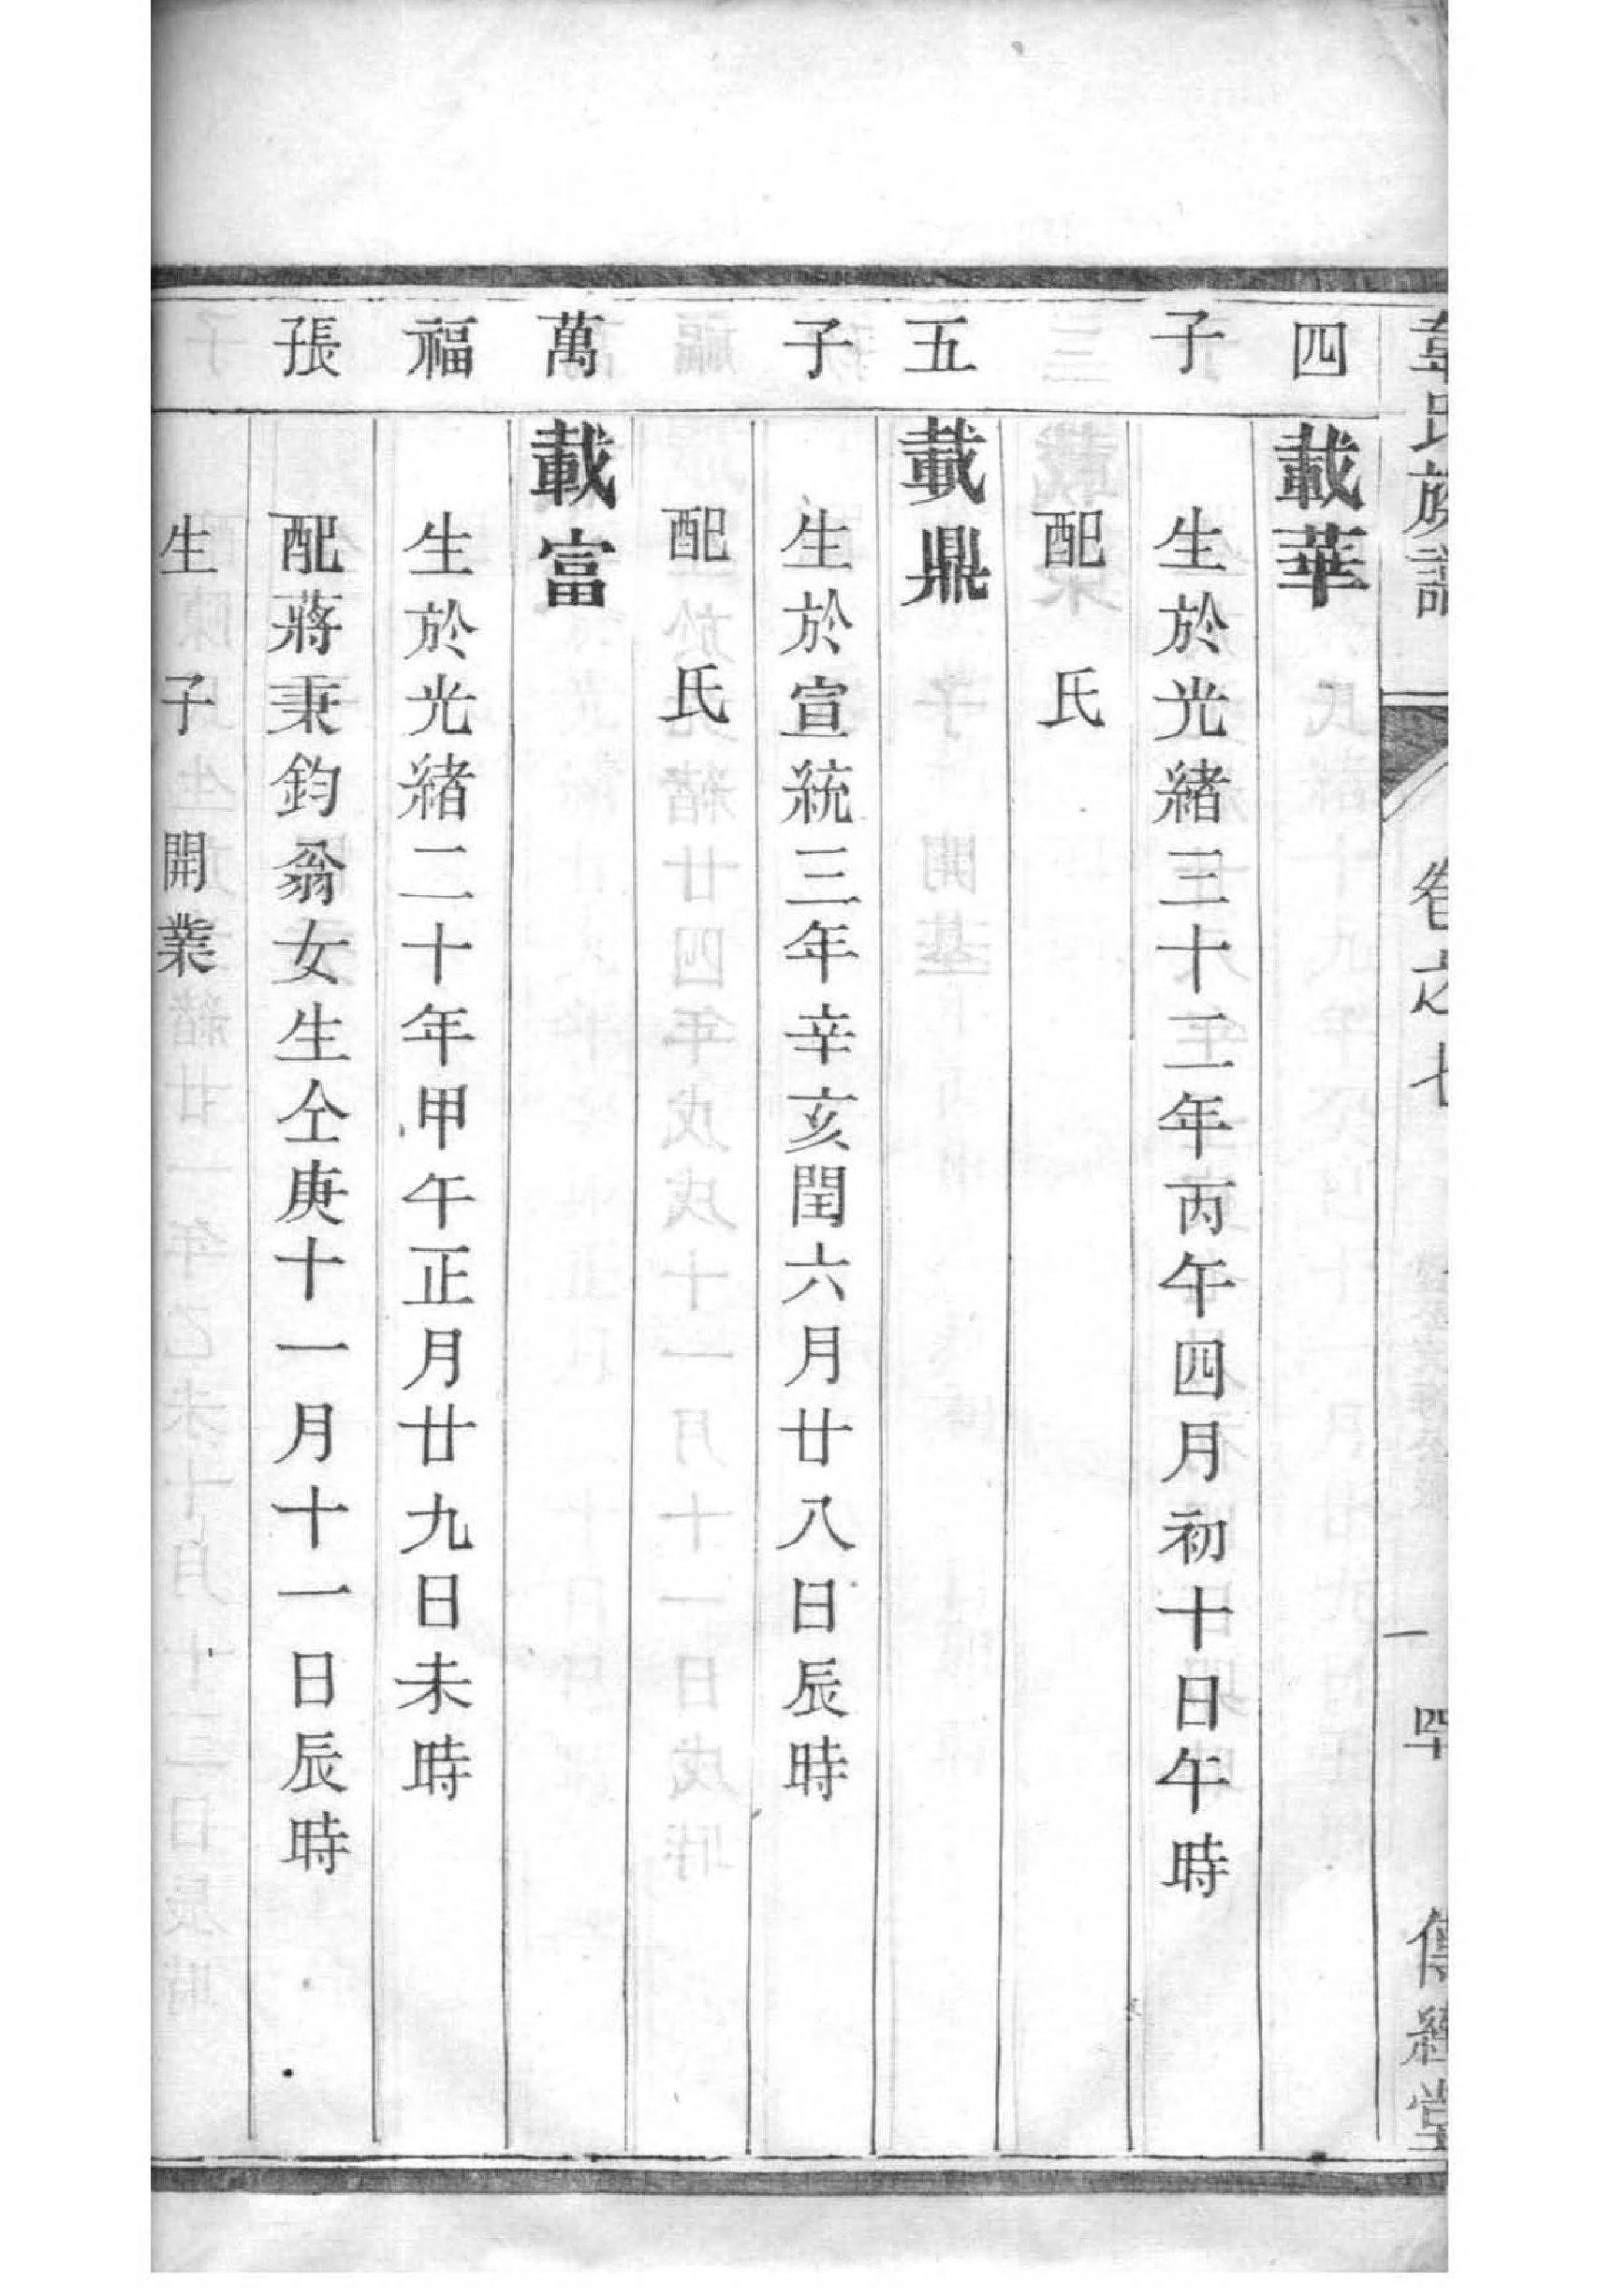 韋氏族譜 卷之七 一 四 傳經堂
四 載華
子 生於光緒三十二年丙午四月初十日午時
配 氏
五 載鼎
子 生於宣統三年辛亥閏六月廿八日辰時
配 氏
萬 載富
福 生於光緒二十年甲午正月廿九日未時
張子 配蔣秉鈞翁女生仝庚十一月十一日辰時
生 子 開業